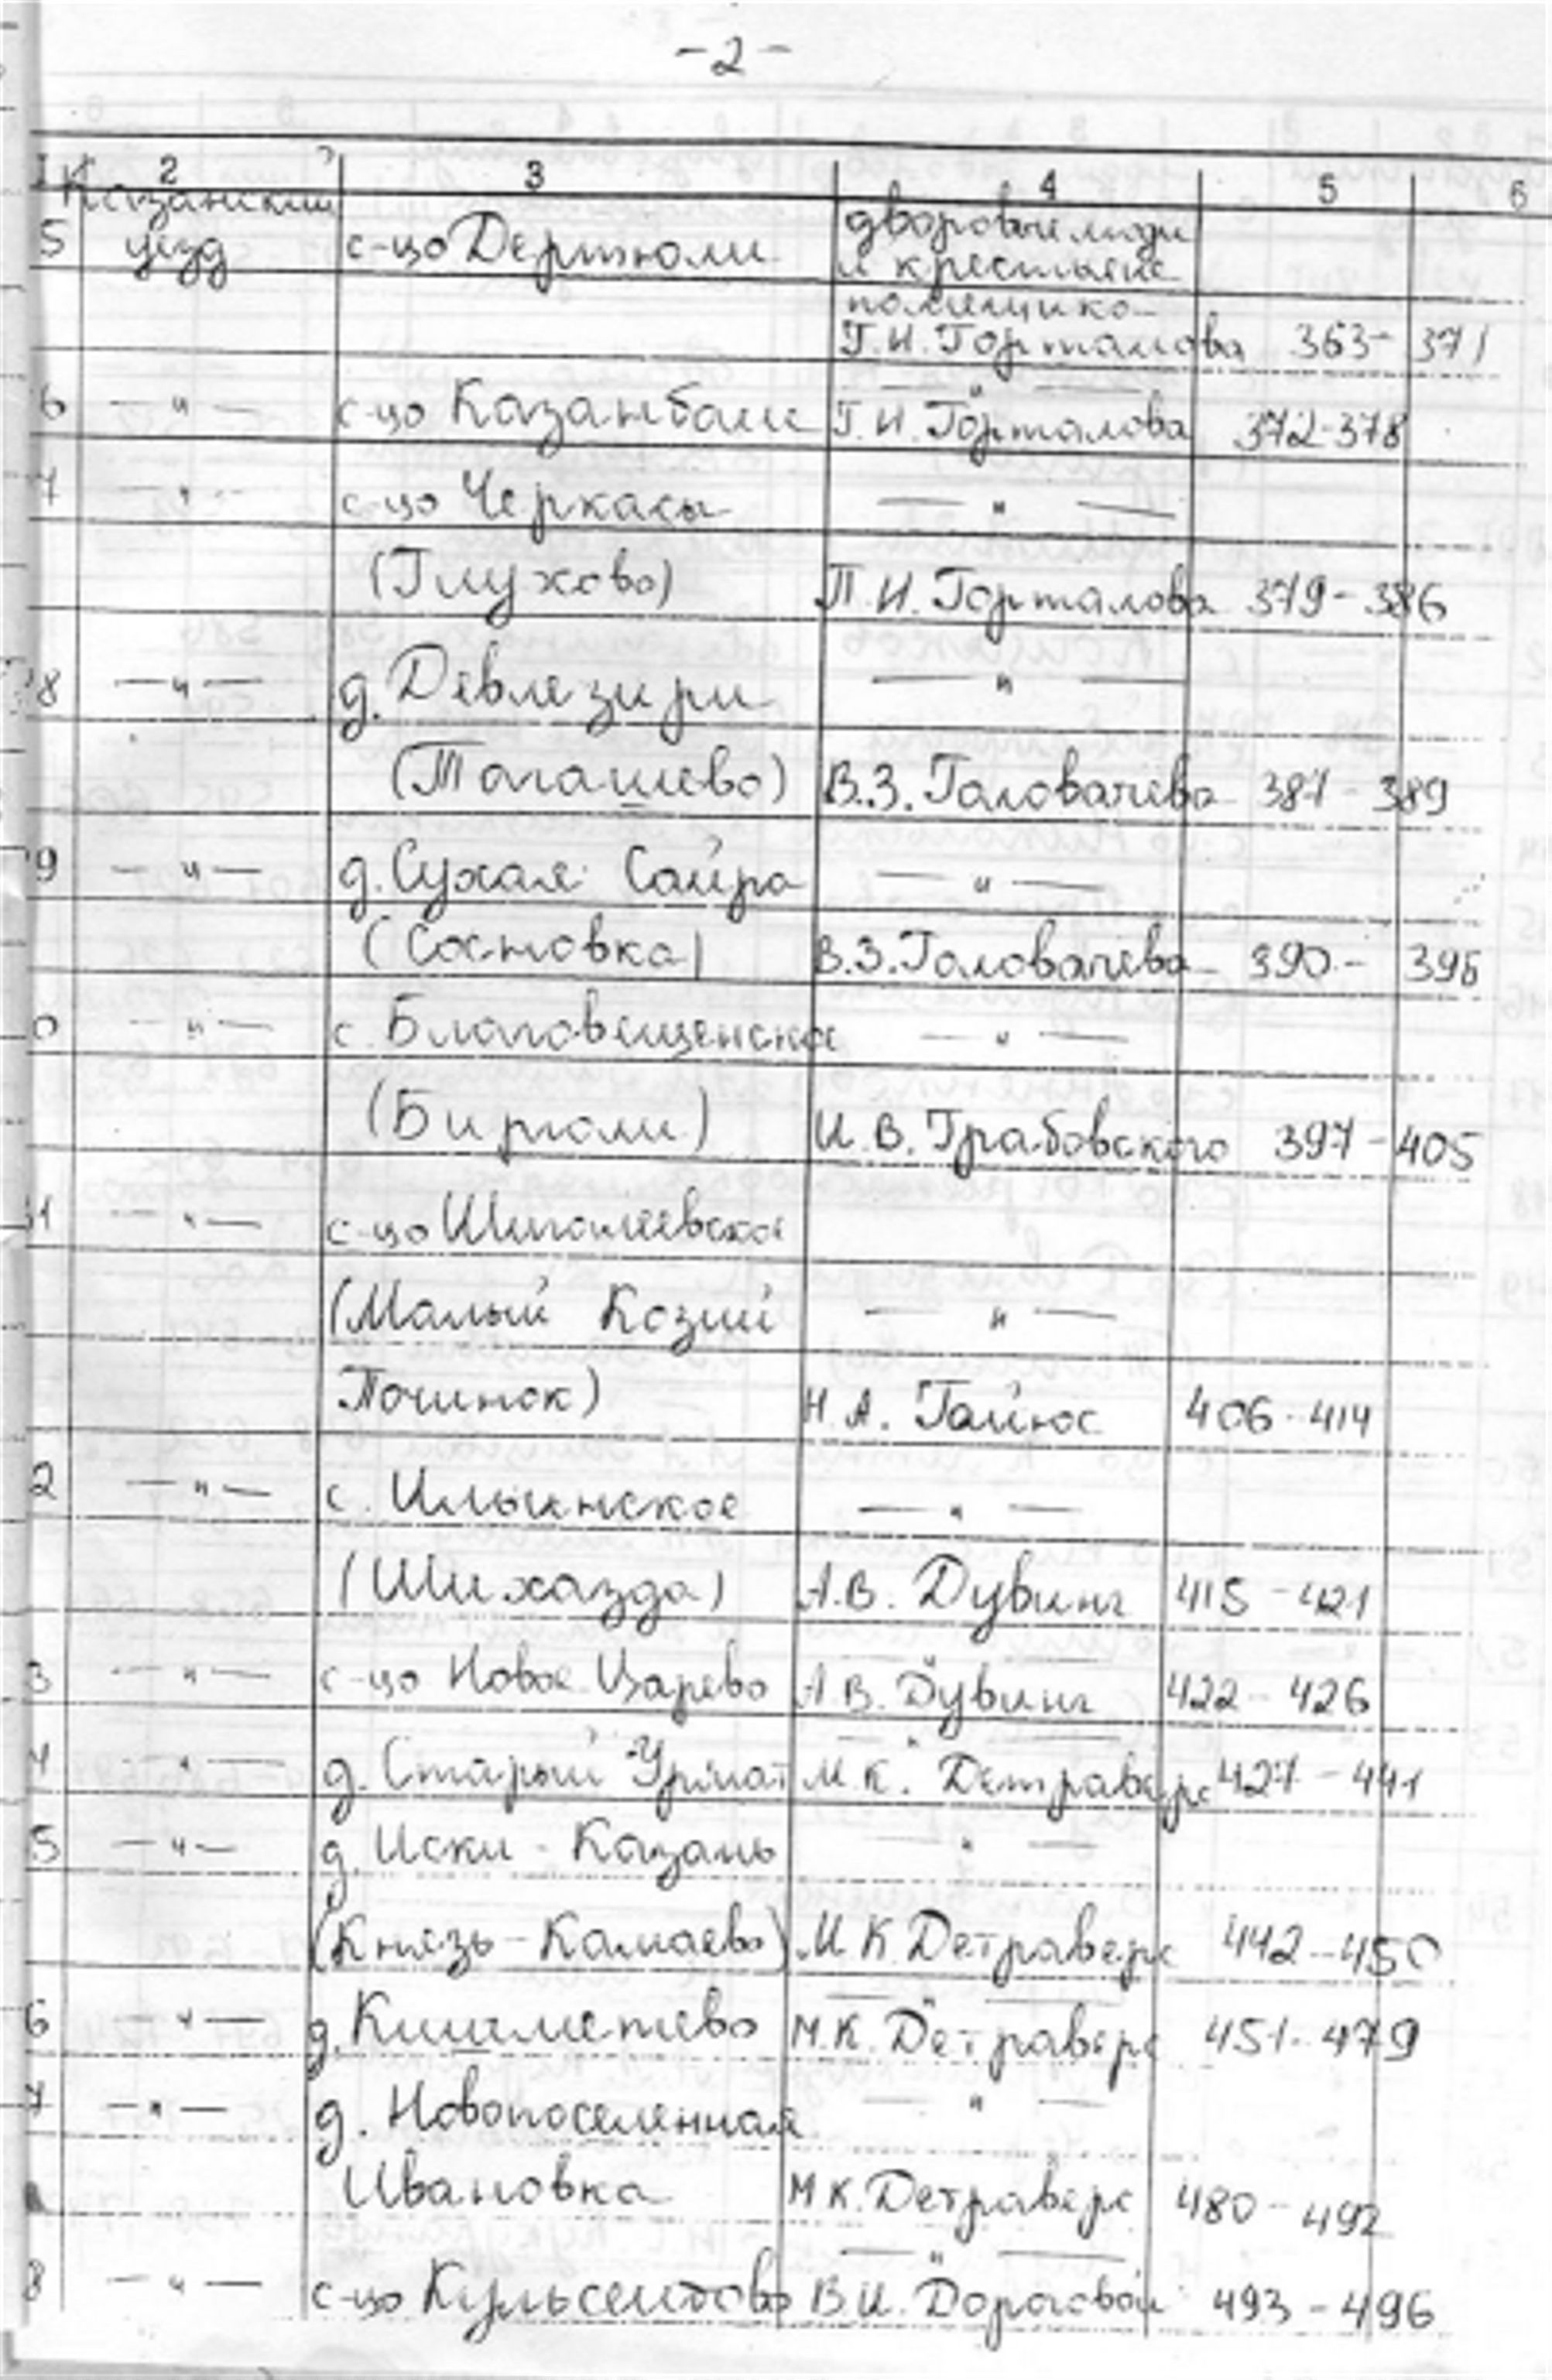 -2-
1 2 3 4 5 6
Казанский дворовые люди
5 уезд с-цо Дертюли и крестьяне
помещика
Г.И. Горталова 363- 371
6 —"— с-цо Казанбаш —"— Г.И. Горталова 372-378
7 —"— с-цо Черкасы —"—
(Глухово) П.И. Горталова 379-386
8 —"— д. Девлезири —"—
(Тагашево) В.З. Головачева 387-389
9 —"— д. Сухая Саира —"—
(Сосновка) В.З. Головачева 390- 396
0 —"— с. Благовещенское —"—
(Бирюли) И.В. Грабовского 397-405
1 —"— с-цо Шигалеевское
(Малый Козий —"—
Починок) Н.А. Гайнос 406-414
2 —"— с. Ильинское —"—
(Шихазда) А.В. Дувинг 415-421
3 —"— с-цо Новое Царево —"— А.В. Дувинг 422-426
4 —"— д. Старый Урмат —"— М.К. Детраверс 427-441
5 —"— д. Иски-Казань —"—
(Князь-Камаево) М.К. Детраверс 442-450
6 —"— д. Кишметево —"— М.К. Детраверс 451-479
7 —"— д. Новопоселенная —"—
Ивановка М.К. Детраверс 480-492
8 —"— с-цо Кульсеитово —"— В.И. Дороговой 493-496